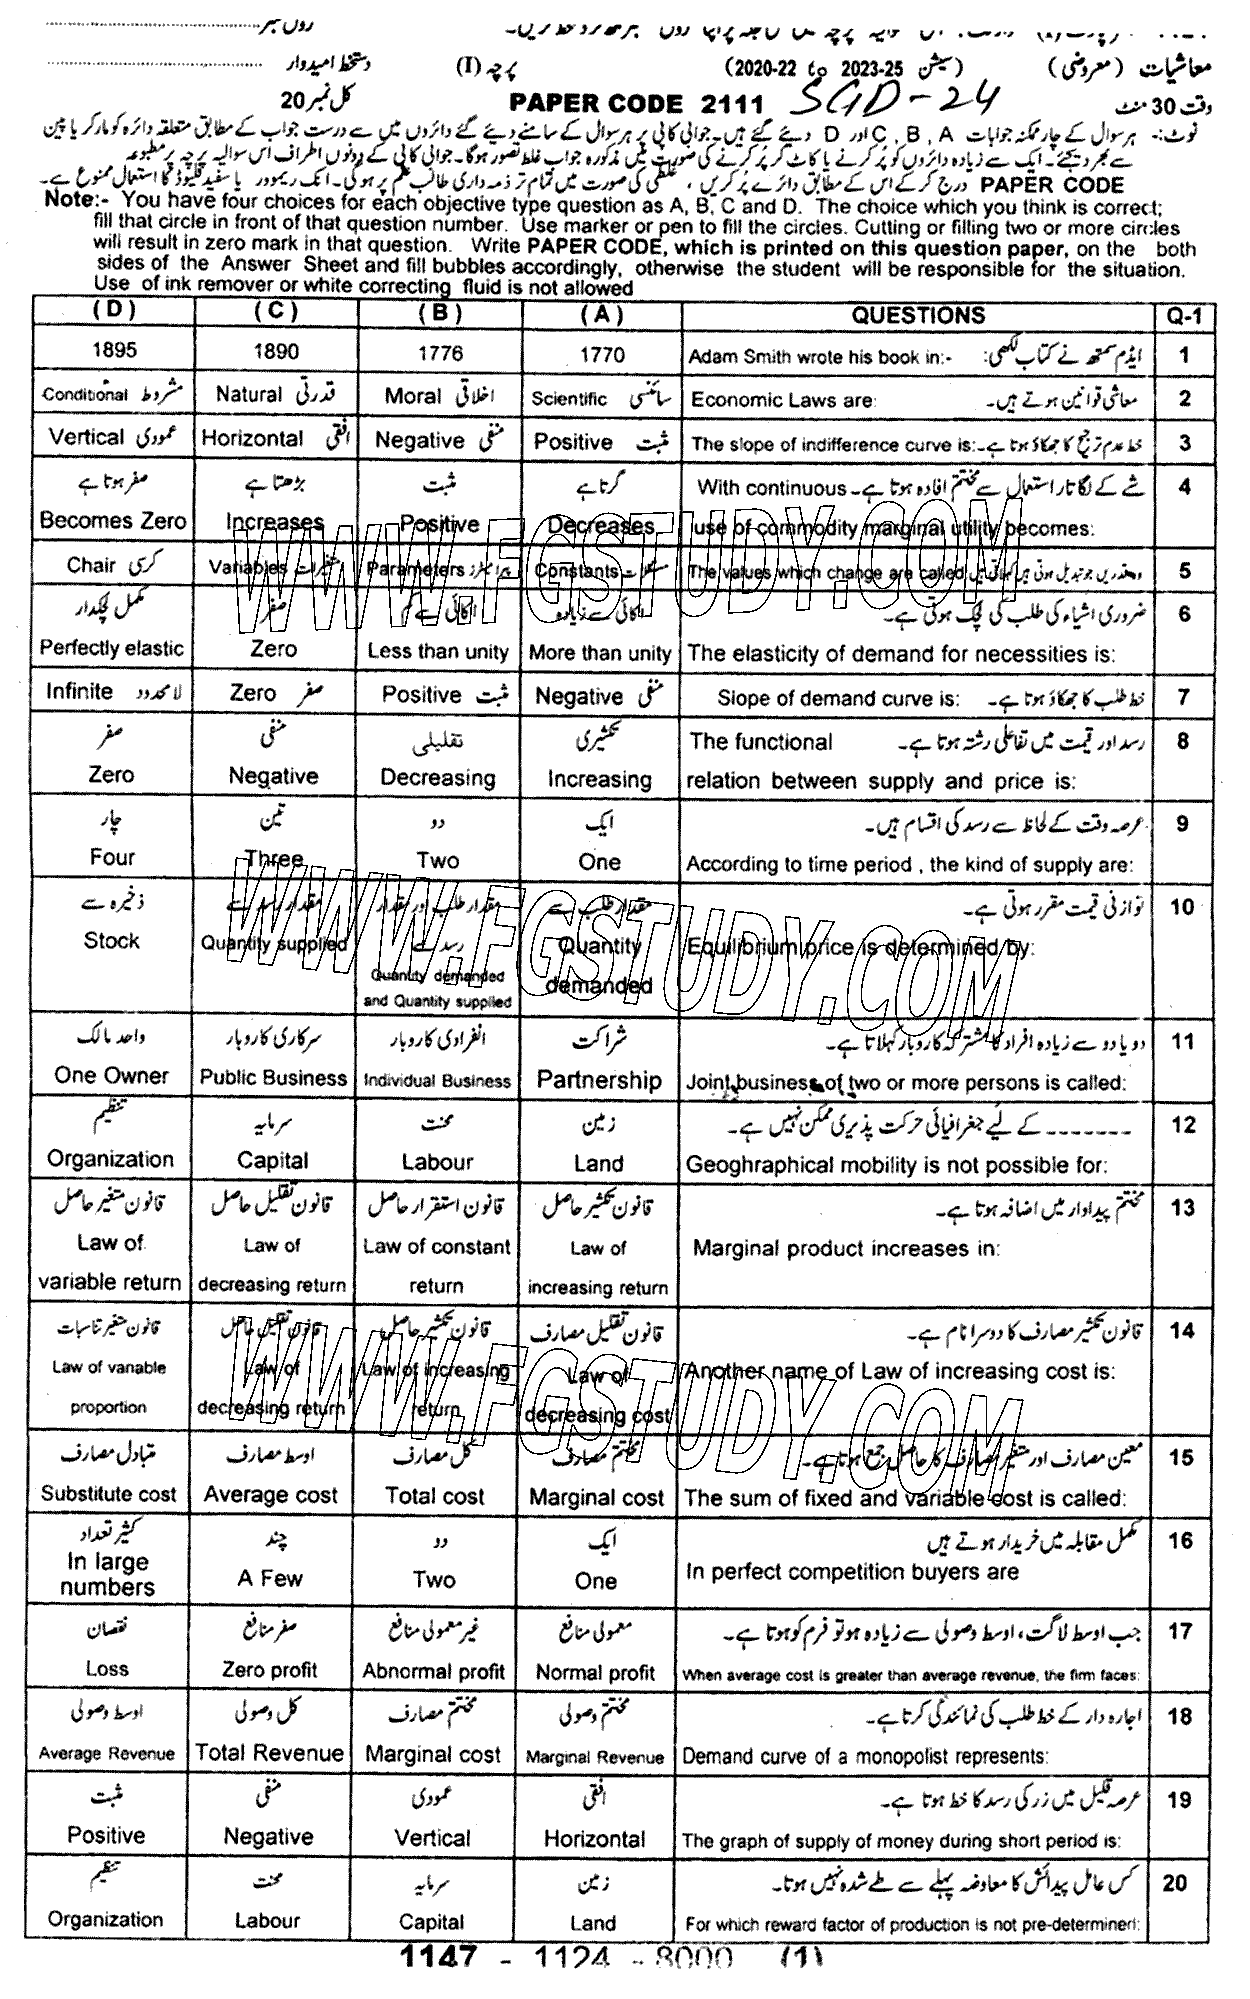 رول نمبر
معاشیات (معروضی) (سیشن 2020-22 to 2023-25) پرچہ (I) دستخط امیدوار
وقت 30 منٹ SGD-24 PAPER CODE 2111 کل نمبر 20
نوٹ:- ہر سوال کے چار ممکنہ جوابات A ، B ، C اور D دیئے گئے ہیں۔ جوابی کاپی پر ہر سوال کے سامنے دیئے گئے دائروں میں سے درست جواب کے مطابق متعلقہ دائرہ کو مارکر یا پین
سے بھر دیجئے۔ ایک سے زیادہ دائروں کو پُر کرنے یا کاٹ کر پُر کرنے کی صورت میں مذکورہ جواب غلط تصور ہوگا۔ جوابی کاپی کے دونوں اطراف اس سوالیہ پرچہ پر مطبوعہ
PAPER CODE درج کر کے اس کے مطابق دائرے پُر کریں ، غلطی کی صورت میں تمام تر ذمہ داری طالب علم پر ہوگی۔ انک ریموور یا سفید فلیوڈ کا استعمال ممنوع ہے۔
Note:- You have four choices for each objective type question as A, B, C and D. The choice which you think is correct;
fill that circle in front of that question number. Use marker or pen to fill the circles. Cutting or filling two or more circles
will result in zero mark in that question. Write PAPER CODE, which is printed on this question paper, on the both
sides of the Answer Sheet and fill bubbles accordingly, otherwise the student will be responsible for the situation.
Use of ink remover or white correcting fluid is not allowed
(D) (C) (B) (A) QUESTIONS Q-1
1895 1890 1776 1770 Adam Smith wrote his book in:- ایڈم سمتھ نے کتاب لکھی: 1
Conditional مشروط Natural قدرتی Moral اخلاقی Scientific سائنسی Economic Laws are: معاشی قوانین ہوتے ہیں۔ 2
Vertical عمودی Horizontal افقی Negative منفی Positive مثبت The slope of indifference curve is:- خط عدم ترجیح کا جھکاؤ ہوتا ہے۔ 3
صفر ہوتا ہے بڑھتا ہے مثبت گرتا ہے With continuous شے کے لگاتار استعمال سے مختتم افادہ ہوتا ہے۔ 4
Becomes Zero Increases Positive Decreases use of commodity marginal utility becomes:
Chair کرسی Variables متغیرات Parameters پیرامیٹرز Constants مستقلات The values which change are called وہ قدریں جو تبدیل ہوتی ہیں کہلاتی ہیں 5
مکمل لچکدار صفر اکائی سے کم اکائی سے زیادہ ضروری اشیاء کی طلب کی لچک ہوتی ہے۔ 6
Perfectly elastic Zero Less than unity More than unity The elasticity of demand for necessities is:
Infinite لامحدود Zero صفر Positive مثبت Negative منفی Slope of demand curve is: خط طلب کا جھکاؤ ہوتا ہے۔ 7
صفر منفی تقلیلی تکثیری The functional رسد اور قیمت میں تفاعلی رشتہ ہوتا ہے۔ 8
Zero Negative Decreasing Increasing relation between supply and price is:
چار تین دو ایک عرصہ وقت کے لحاظ سے رسد کی اقسام ہیں۔ 9
Four Three Two One According to time period , the kind of supply are:
ذخیرہ سے مقدار رسد سے مقدار طلب اور مقدار رسد سے مقدار طلب سے توازنی قیمت مقرر ہوتی ہے۔ 10
Stock Quantity supplied Quantity demanded and Quantity supplied Quantity demanded Equilibrium price is determined by:
واحد مالک سرکاری کاروبار انفرادی کاروبار شراکت دو یا دو سے زیادہ افراد کا مشترکہ کاروبار کہلاتا ہے۔ 11
One Owner Public Business Individual Business Partnership Joint business of two or more persons is called:
تنظیم سرمایہ محنت زمین ------- کے لیے جغرافیائی حرکت پذیری ممکن نہیں ہے۔ 12
Organization Capital Labour Land Geoghraphical mobility is not possible for:
قانون متغیر حاصل قانون تقلیل حاصل قانون استقرار حاصل قانون تکثیر حاصل مختتم پیداوار میں اضافہ ہوتا ہے۔ 13
Law of variable return Law of decreasing return Law of constant return Law of increasing return Marginal product increases in:
قانون متغیر تناسبات قانون تقلیل حاصل قانون تکثیر حاصل قانون تقلیل مصارف قانون تکثیر مصارف کا دوسرا نام ہے۔ 14
Law of vanable proportion Law of decreasing return Law of increasing return Law of decreasing cost Another name of Law of increasing cost is:
متبادل مصارف اوسط مصارف کل مصارف مختتم مصارف معین مصارف اور متغیر مصارف کا حاصل جمع ہوتا ہے۔ 15
Substitute cost Average cost Total cost Marginal cost The sum of fixed and variable cost is called:
کثیر تعداد چند دو ایک مکمل مقابلہ میں خریدار ہوتے ہیں 16
In large numbers A Few Two One In perfect competition buyers are
نقصان صفر منافع غیر معمولی منافع معمولی منافع جب اوسط لاگت، اوسط وصولی سے زیادہ ہو تو فرم کو ہوتا ہے۔ 17
Loss Zero profit Abnormal profit Normal profit When average cost is greater than average revenue, the firm faces:
اوسط وصولی کل وصولی مختتم مصارف مختتم وصولی اجارہ دار کے خط طلب کی نمائندگی کرتا ہے۔ 18
Average Revenue Total Revenue Marginal cost Marginal Revenue Demand curve of a monopolist represents:
مثبت منفی عمودی افقی عرصہ قلیل میں زر کی رسد کا خط ہوتا ہے۔ 19
Positive Negative Vertical Horizontal The graph of supply of money during short period is:
تنظیم محنت سرمایہ زمین کس عامل پیدائش کا معاوضہ پہلے سے طے شدہ نہیں ہوتا۔ 20
Organization Labour Capital Land For which reward factor of production is not pre-determined:
1147 - 1124 - 8000 (1)
WWW.FGSTUDY.COM
WWW.FGSTUDY.COM
WWW.FGSTUDY.COM